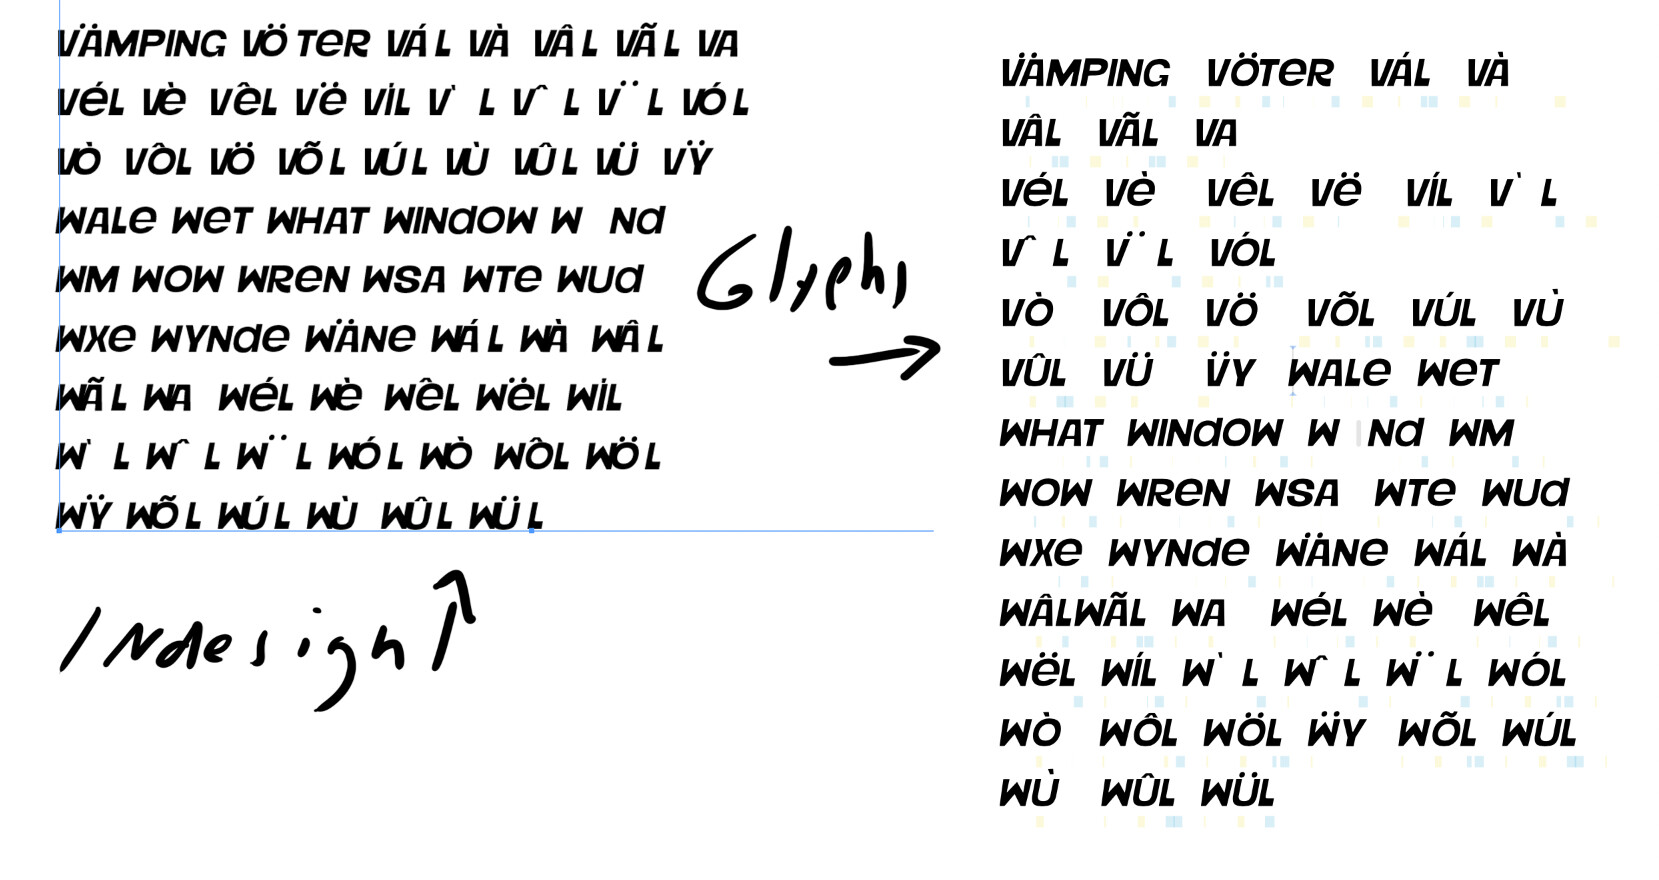 VÄMPING VÖTeR VÁL VÀ VÂL VÃL VA
VéL Vè VêL Vë VíL V` L Vˆ L V¨ L VÓL
VÒ VÔL VÖ VÕL VÚL VÙ VÛL VÜ VŸ
WALe WeT WHAT WINdOW W Nd
WM WOW WReN WSA WTe WUd
WXe WYNde WÄNe WÁL WÀ WÂL
WÃL WA WéL Wè WêL WëL WíL
W` L Wˆ L W¨ L WÓL WÒ WÔL WÖL
WŸ WÕL WÚL WÙ WÛL WÜL
INdesign
Glyphs
VÄMPING VÖTeR VÁL VÀ
VÂL VÃL VA
VéL Vè VêL Vë VÍL V` L
Vˆ L V¨ L VÓL
VÒ VÔL VÖ VÕL VÚL VÙ
VÛL VÜ V̈Y WALe WeT
WHAT WINdOW W Nd WM
WOW WReN WSA WTe WUd
WXe WYNde WÄNe WÁL WÀ
WÂLWÃL WA WéL Wè WêL
WëL WÍL W` L Wˆ L W¨ L WÓL
WÒ WÔL WÖL ẄY WÕL WÚL
WÙ WÛL WÜL